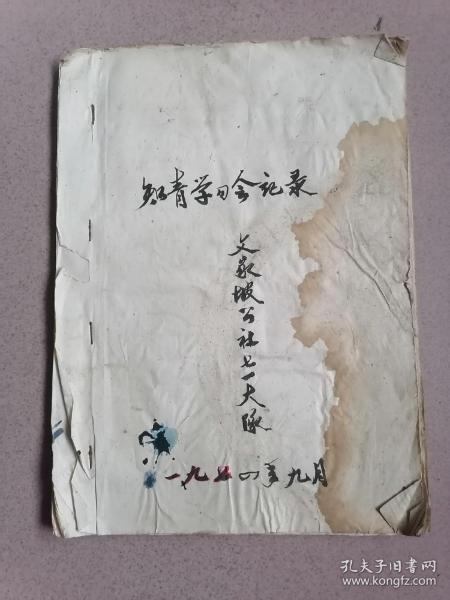 知青学习会记录
文家坡公社七一大队
一九七四年九月
孔夫子旧书网
www.kongfz.com